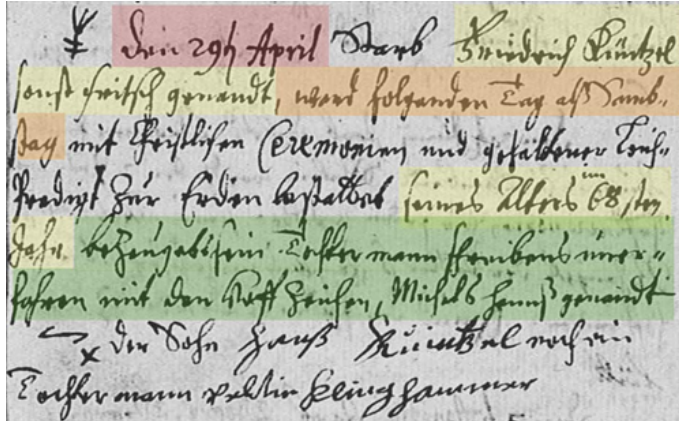 den 29ten April Starb Friedrich Küntzel
sonst fritsch genandt, ward folgenden Tag alß Samb-
stag mit Christlichen Ceremonien und gehaltener Leich-
Predigt zur Erden bestattet seines Alters im 68sten
Jahr. bezeugets sein Tochtermann schreibens uner-
fahren mit den Hoff Zeichen, Michels Hannß genandt
x der Sohn Hanß Küntzel noch ein
Tochtermann veltin Klinghammer